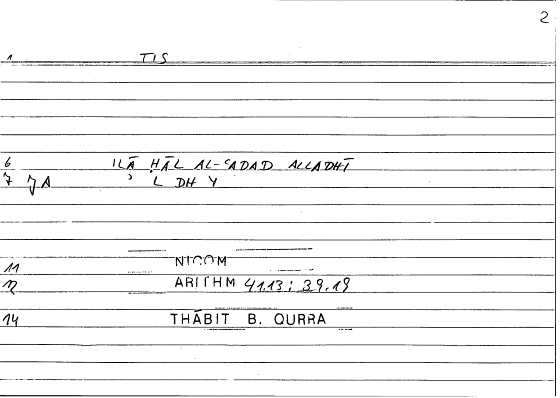 2
1 TIS
6 ILĀ ḤĀL AL-ʿADAD ALLADHĪ
7 JA ʾ L DH Y
11 NICOM
12 ARITHM 41.13; 39.19
14 THĀBIT B. QURRA